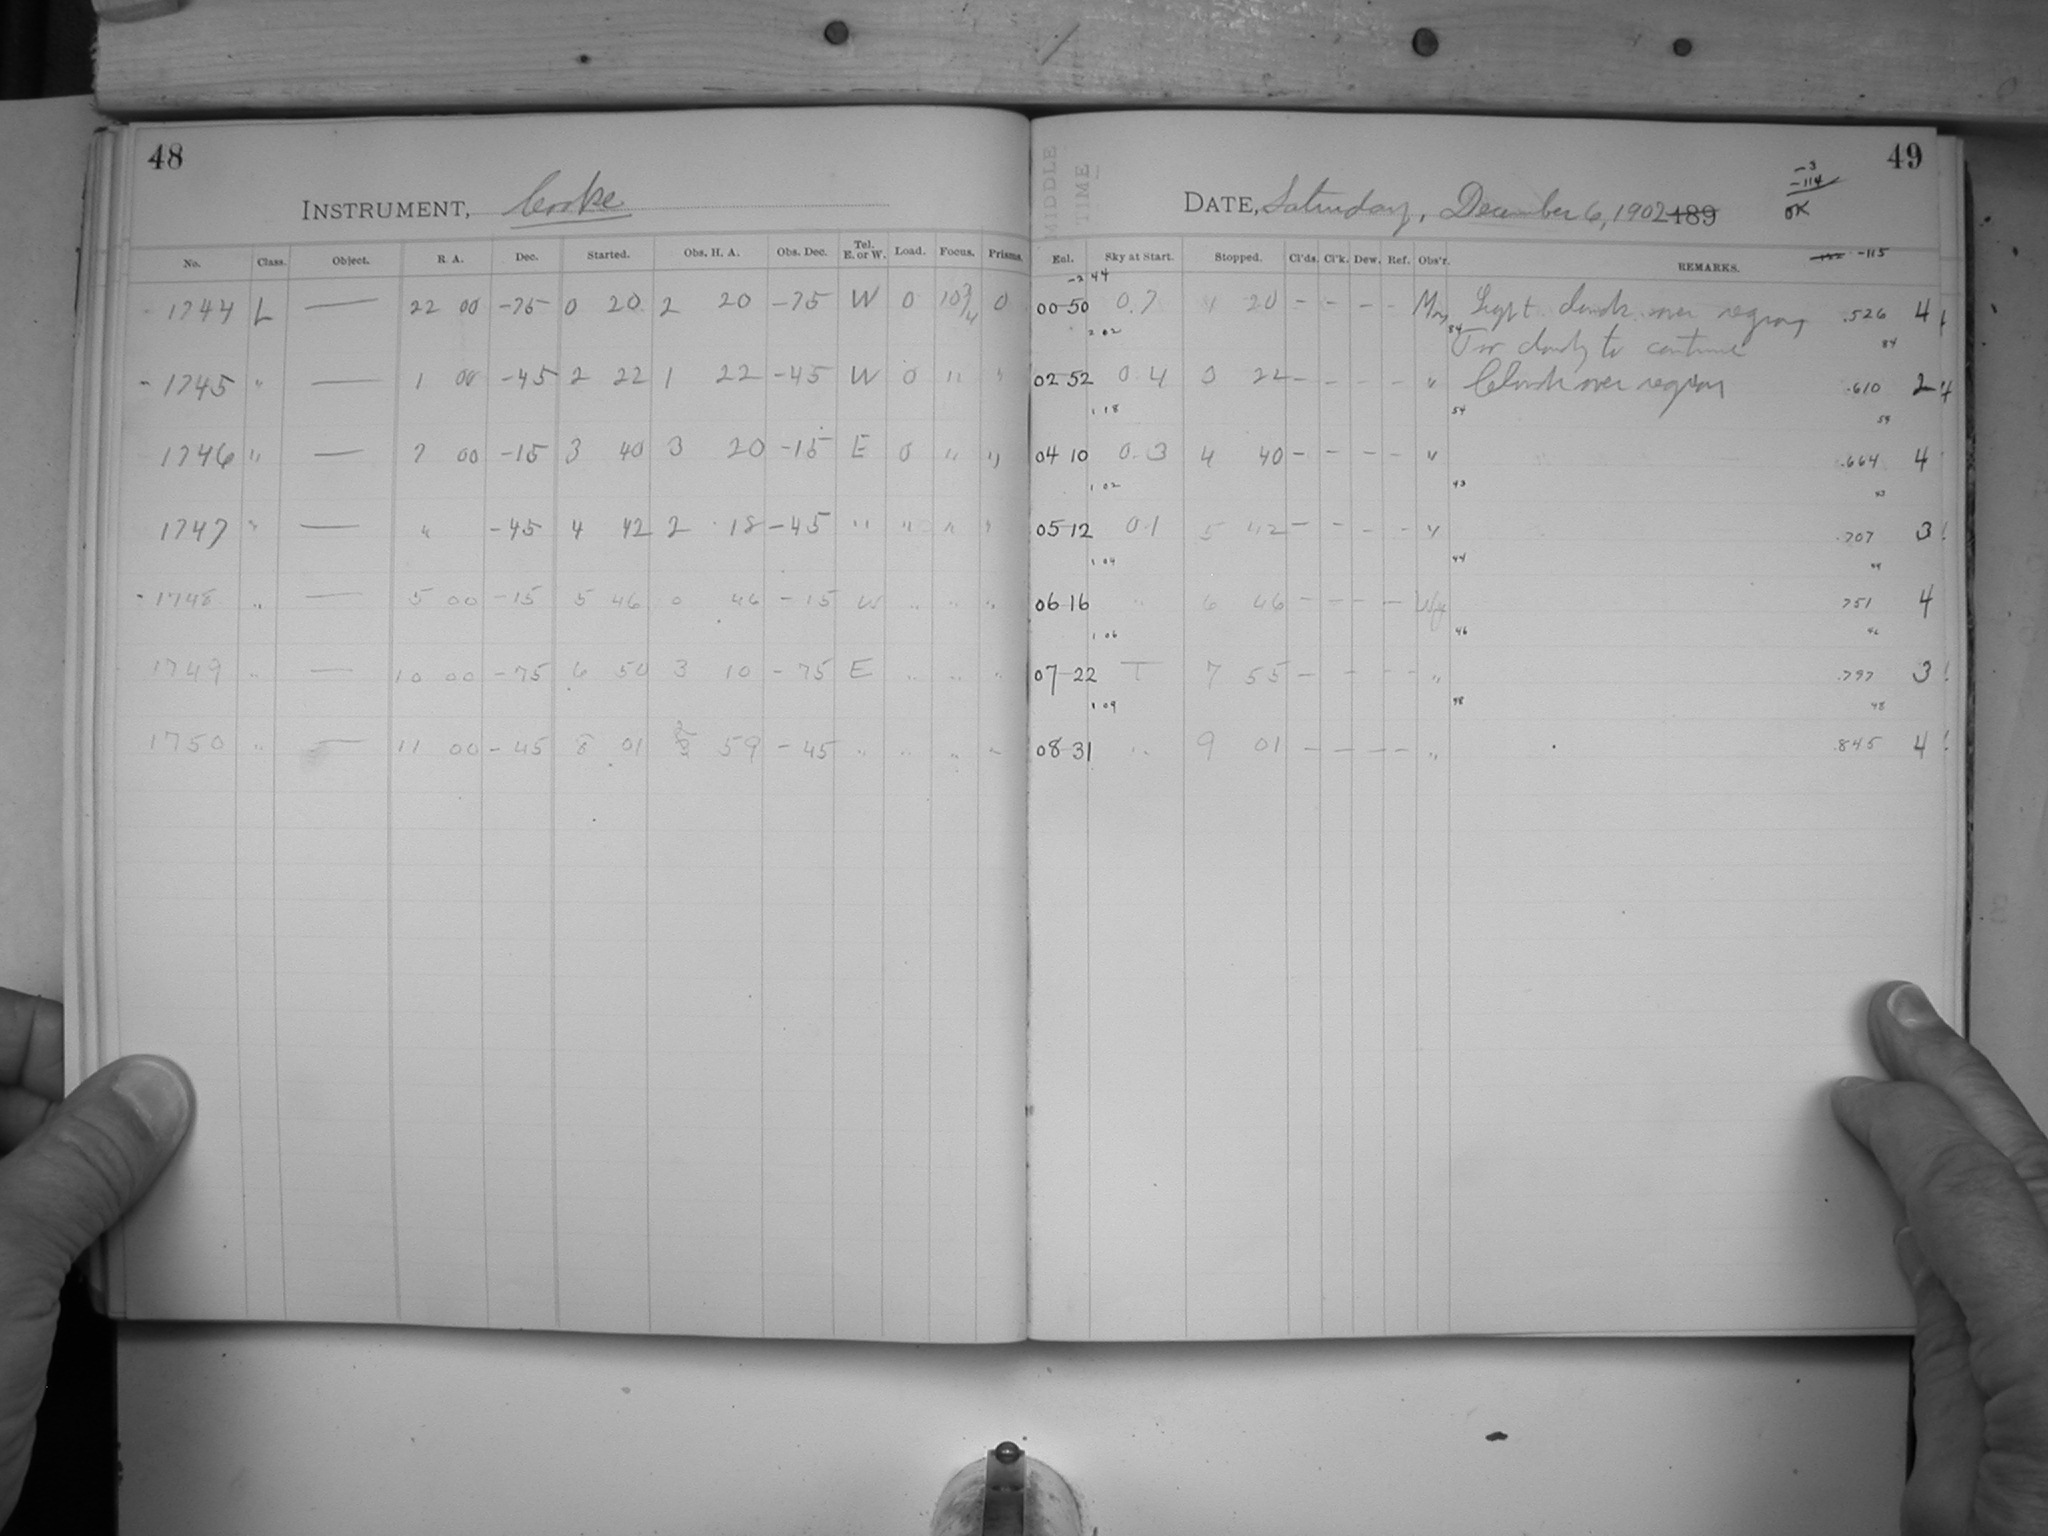 48
INSTRUMENT, Cooke
No. Class. Object. R. A. Dec. Started. Obs. H. A. Obs. Dec. Tel. E. or W. Load. Focus. Prisms.
1744 L — 22 00 -75 0 20 2 20 -75 W 0 10 3/4 0
1745 " — 1 00 -45 2 22 1 22 -45 W 0 " "
1746 " — 7 00 -15 3 40 3 20 -15 E 0 " "
1747 " — " -45 4 42 2 18 -45 " " " "
1748 " — 5 00 -15 5 46 0 46 -15 W " " "
1749 " — 10 00 -75 6 50 3 10 -75 E " " "
1750 " — 11 00 -45 8 01 2 59 -45 " " " "
49
MIDDLE
TIME
-3
-114
OK
DATE, Saturday, December 6, 1902 189
Enl. Sky at Start. Stopped. Cl'ds. Cl'k. Dew. Ref. Obs'r. REMARKS. -115
-2 44
00 50 0.7 1 20 - - - - Light clouds over region .526 4
2 02 84 Too cloudy to continue 84
02 52 0.4 3 22 - - - - " Clouds over region .610 2 4
1 18 54 54
04 10 0.3 4 40 - - - - " .664 4
1 02 43 43
05 12 0.1 5 42 - - - - " .707 3
1 04 44 44
06 16 " 6 46 - - - - 751 4
1 06 46 46
07 22 T 7 55 - - - - " .797 3
1 09 48 48
08 31 " 9 01 - - - - " .845 4